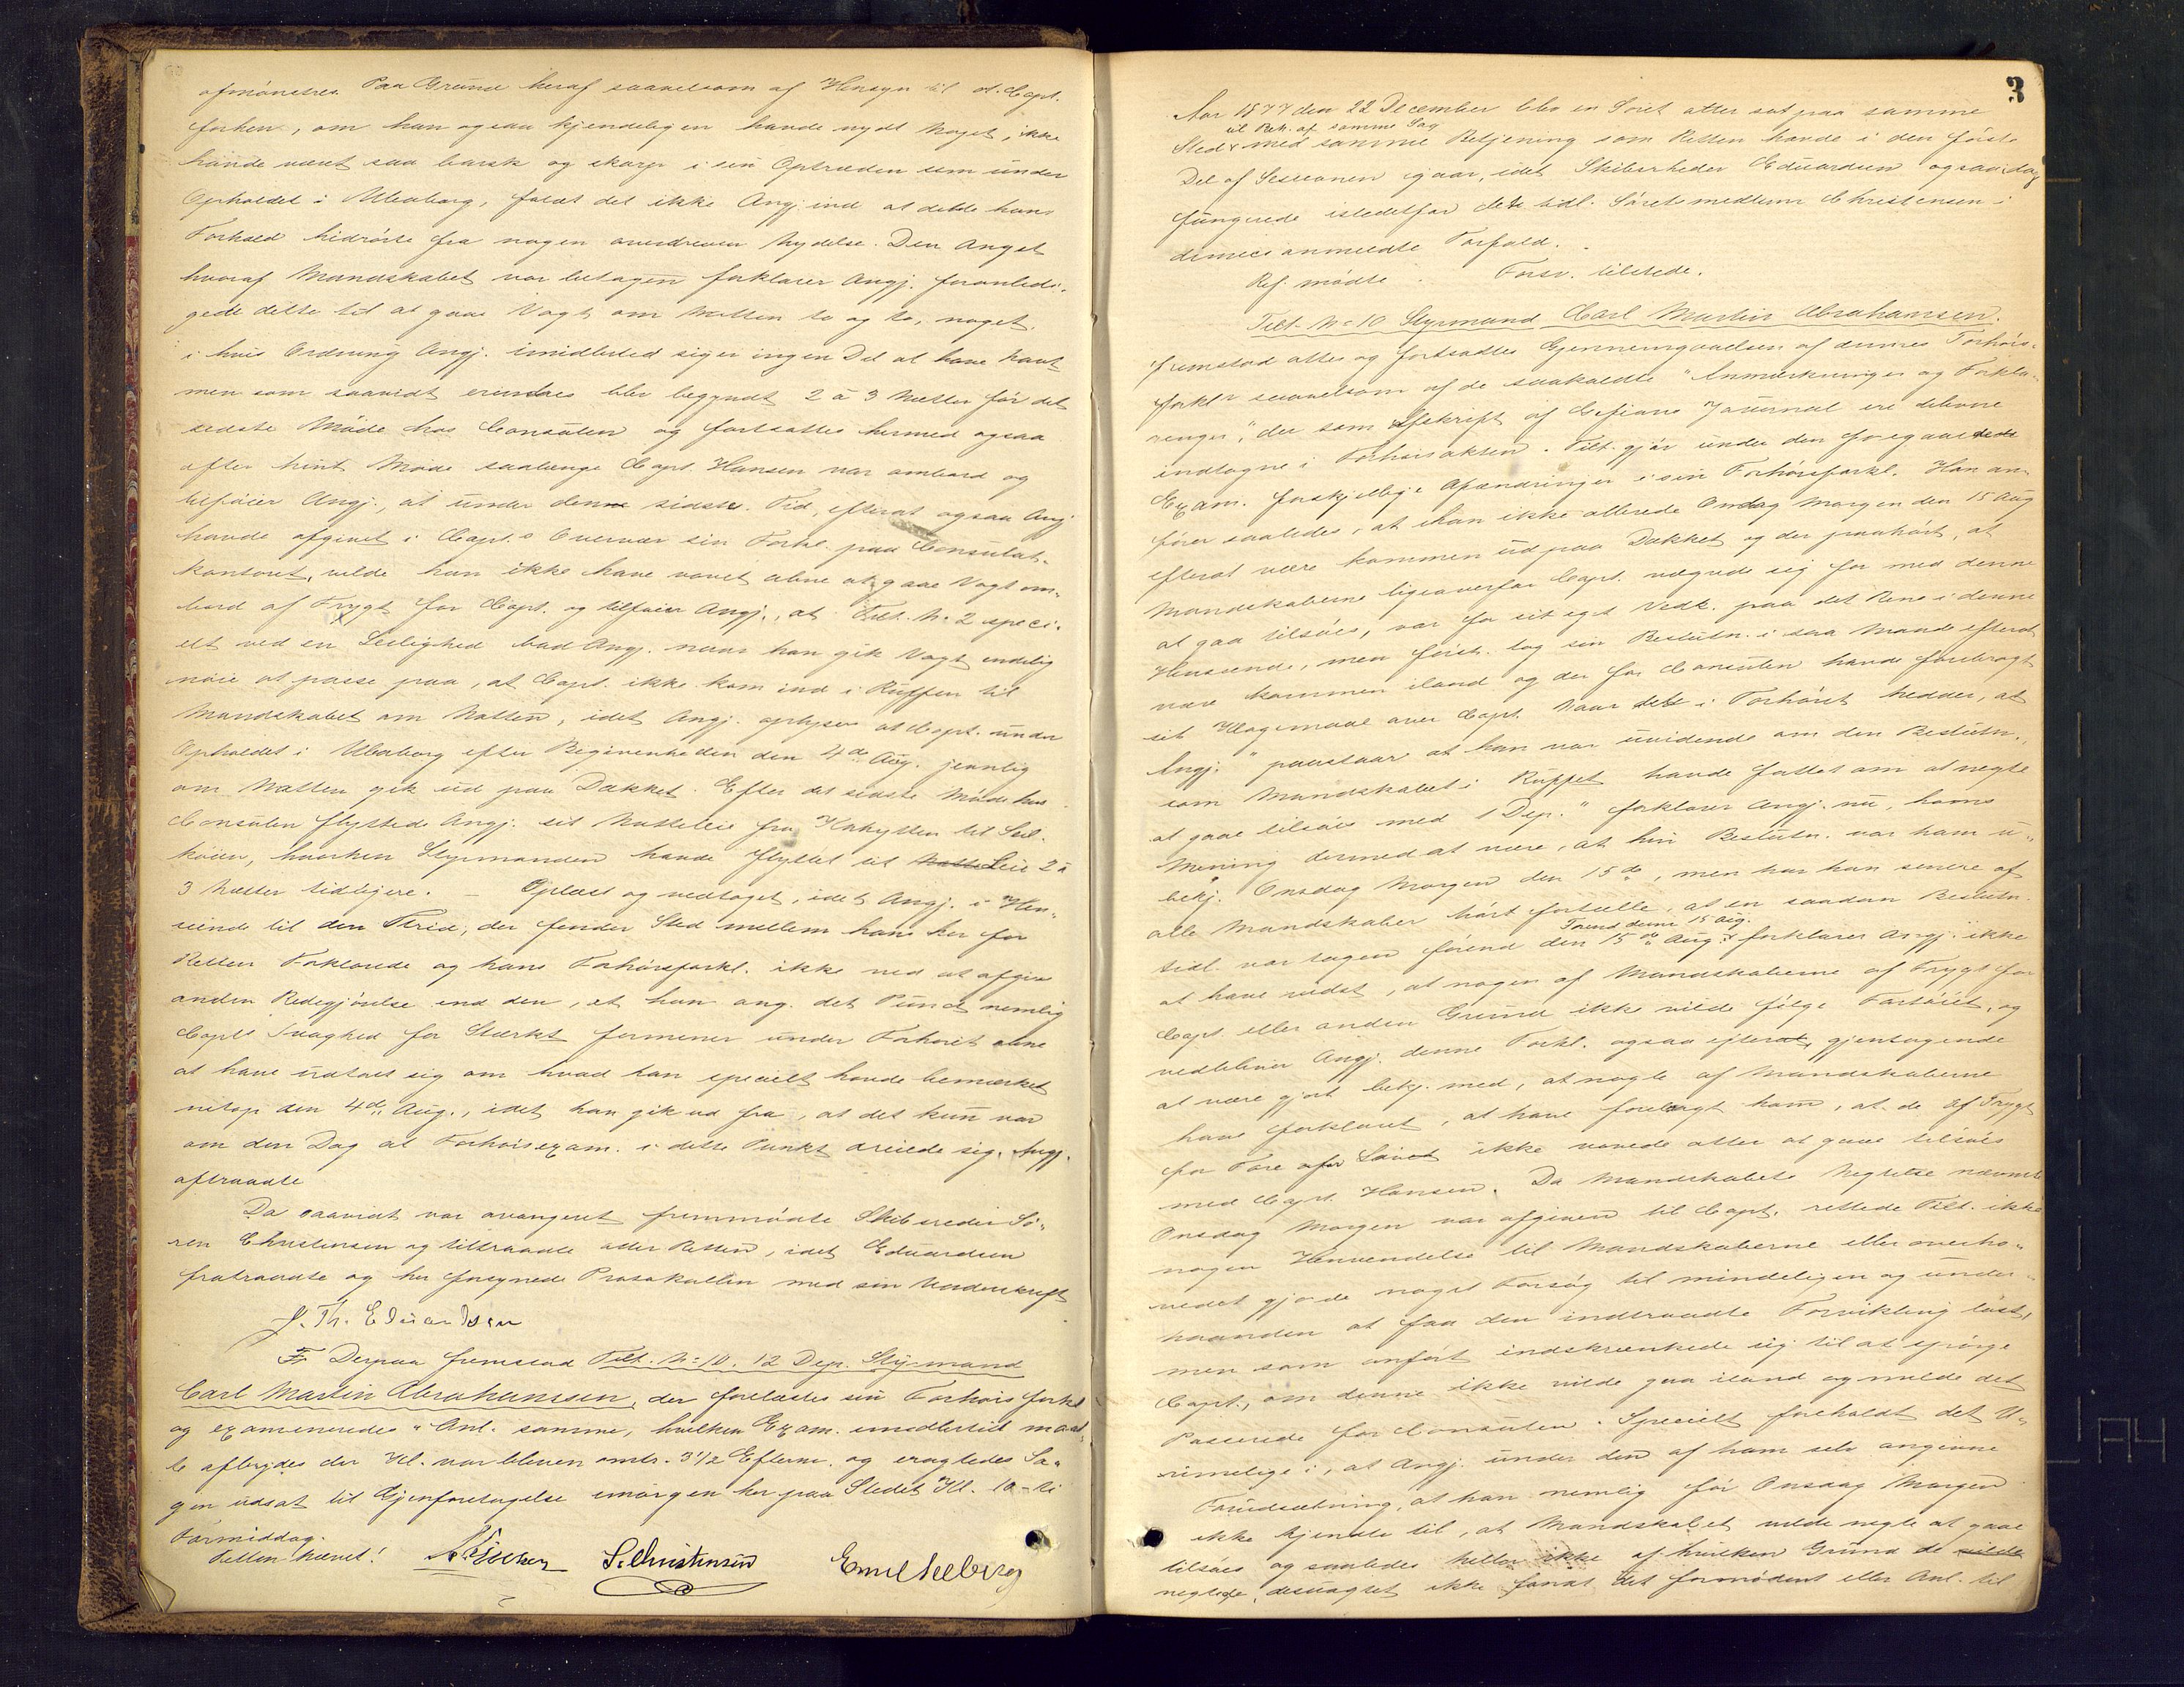 afmønstres. Paa Grund heraf saavelsom af Hensyn til at Capt.
forhen, om han ogsaa kjendeligen havde nydt Noget, ikke
havde været saa barsk og skarp i sin Optræden som under
Opholdet i Uleaborg, faldt det ikke Angj. ind at dette hans
Forhold hidrørte fra nogen overdreven Nydelse. Den Angst
hvoraf Mandskabet var betagen forklarer Angj. foranledi-
gede dette til at gaae Vagt om Natten to og to, noget,
i hvis Ordning Angj. imidlertid siger ingen Del at have havt
men som saavidt erindres blev begyndt 2 à 3 Nætter før det
sidste Møde hos Consulen og fortsattes hermed ogsaa
efter hint Møde saalænge Capt. Hansen var ombord og
tilføier Angj., at under denne sidste Tid, efterat ogsaa Angj
havde afgivet i Capt.s Overvær sin Forkl. paa Consulat-
kontoret, vilde han ikke have vovet alene at gaae Vagt om-
bord af Frygt for Capt. og tilføier Angj., at Tilt. No 2 speci-
elt ved en Leilighed bad Angj. naar han gik Vagt endelig
nøie at passe paa, at Capt. ikke kom ind i Ruffen til
Mandskabet om Natten, idet Angj. oplyser at Capt. under
Opholdet i Uleaborg efter Begivenheden den 4de Aug. jevnlig
om Natten gik ud paa Dækket. Efter det sidste Møde hos
Consulen flyttede Angj. sit Natteleie fra Kahytten til Seil-
køien, hvorhen Styrmanden havde flyttet sit Natte Leie 2 à
3 Nætter tidligere. – Oplæst og vedtaget, idet Angj. i Hen-
seende til den Strid, der finder Sted mellem hans her for
Retten Forklarede og hans Forhørsforkl. ikke ved at afgive
anden Redegjørelse end den, at han ang. det Punct nemlig
Capts Svaghed for Stærkt formener under Forhøret alene
at have udtalt sig om hvad han specielt havde bemærket
netop den 4de Aug., idet han gik ud fra, at det kun var
om den Dag at Forhørsexam. i dette Punkt dreiede sig. Angj.
aftraadte
Da saavidt var avanceret fremmødte Skibsreder Sø-
ren Christensen og tiltraadte atter Retten, idet Eduardsen
fratraadte og her forsynede Protokollen med sin Underskrift
J. Th. Eduardsen
Derpaa fremstod Tilt. No 10. 12 Dep. Styrmand
Carl Martin Abrahamssen, der forelæstes sin Forhørs forkl
og examineredes i Anl. samme, hvilken Exam. imidlertid maat-
te afbrydes da Kl. var bleven omtr. 3 1/2 Efterm. og eragtedes Sa-
gen udsat til Gjenforetagelse imorgen her paa Stedet Kl. 10 – ti
Formiddag.
Retten hævet! S. Christensen Emil Selberg
3
Aar 1877 den 22 December blev en Søret atter sat paa samme
til Beh. af samme Sag
Sted med samme Betjening som Retten havde i den første
Del af Sessionen igaar, idet Skibsrheder Eduardsen ogsaa idag
fungerede istedetfor det tidl. Søretsmedlem Christensen i
dennes anmeldte Forfald.
Ref. mødte. Forsv. tilstede.
Tilt. No 10 Styrmand Carl Martin Abrahamsen.
fremstod atter og fortsattes Gjennemgaaelsen af dennes Forhørs-
forkl. saavelsom af de saakaldte "Anmærkninger og Forkla-
ringer", der som Afskrift af Gefions Journal ere blevne
indtagne i Forhørsakten. Tilt. gjør under den foregaaede
Exam. forskjellige Afændringer i sin Forhørsforkl. Han an-
fører saaledes, at han ikke allerede Onsdag Morgen den 15 Aug
efterat være kommen ud paa Dækket og der paahørt, at
Mandskaberne ligeoverfor Capt. vægrede sig for med denne
at gaa tilsøes, var for sit eget Vedk. paa det Rene i denne
Henseende, men først tog sin Beslutn. i saa Maade efterat
være kommen iland og der for Consulen havde forebragt
sit Klagemaal over Capt. Naar det i Forhøret hedder, at
Angj. "paastaar at han var uvidende om den Beslutn.,
som Mandskabet i Ruffet havde fattet om at negte
at gaae tilsøes med 1 Dep." forklarer Angj. nu, hans
Mening dermed at være, at hin Beslutn. var ham u-
bekj. Onsdag Morgen den 15de, men har han senere af
alle Mandskaber hørt fortælle, at en saadan Beslutn.
Forend denne 15 Aug.
tidl. var tagen førend den 15de Aug. forklarer Angj. ikke
at have vidst, at nogen af Mandskaberne af Frygt for
Capt. eller anden Grund ikke vilde følge Fartøiet, og
vedbliver Angj. denne Forkl. ogsaa efterat gjentagende
at være gjort bekj. med, at nogle af Mandskaberne
have forklaret, at have forebragt ham, at de af Frygt
for Fare for Livet ikke vovede atter at gaae tilsøes
med Capt. Hansen. Da Mandskabets Negtelse nævnte
Onsdag Morgen var afgiven til Capt. rettede Tilt. ikke
nogen Henvendelse til Mandskaberne eller overho-
vedet gjorde noget Forsøg til mindeligen og under-
haanden at faa den indtraadte Forvikling løst,
men som anført indskrænkede sig til at spørge
Capt., om denne ikke vilde gaa iland og melde det
Passerede for Consulen. Specielt foreholdt det U-
rimelige i, at Angj. under den af ham selv angivne
Forudsætning, at han nemlig før Onsdag Morgen
ikke kjendte til, at Mandskabet vilde negte at gaae
tilsøes og saaledes heller ikke af hvilken Grund de vilde
negtede, desuagtet ikke fandt det fornødent eller Anl. til